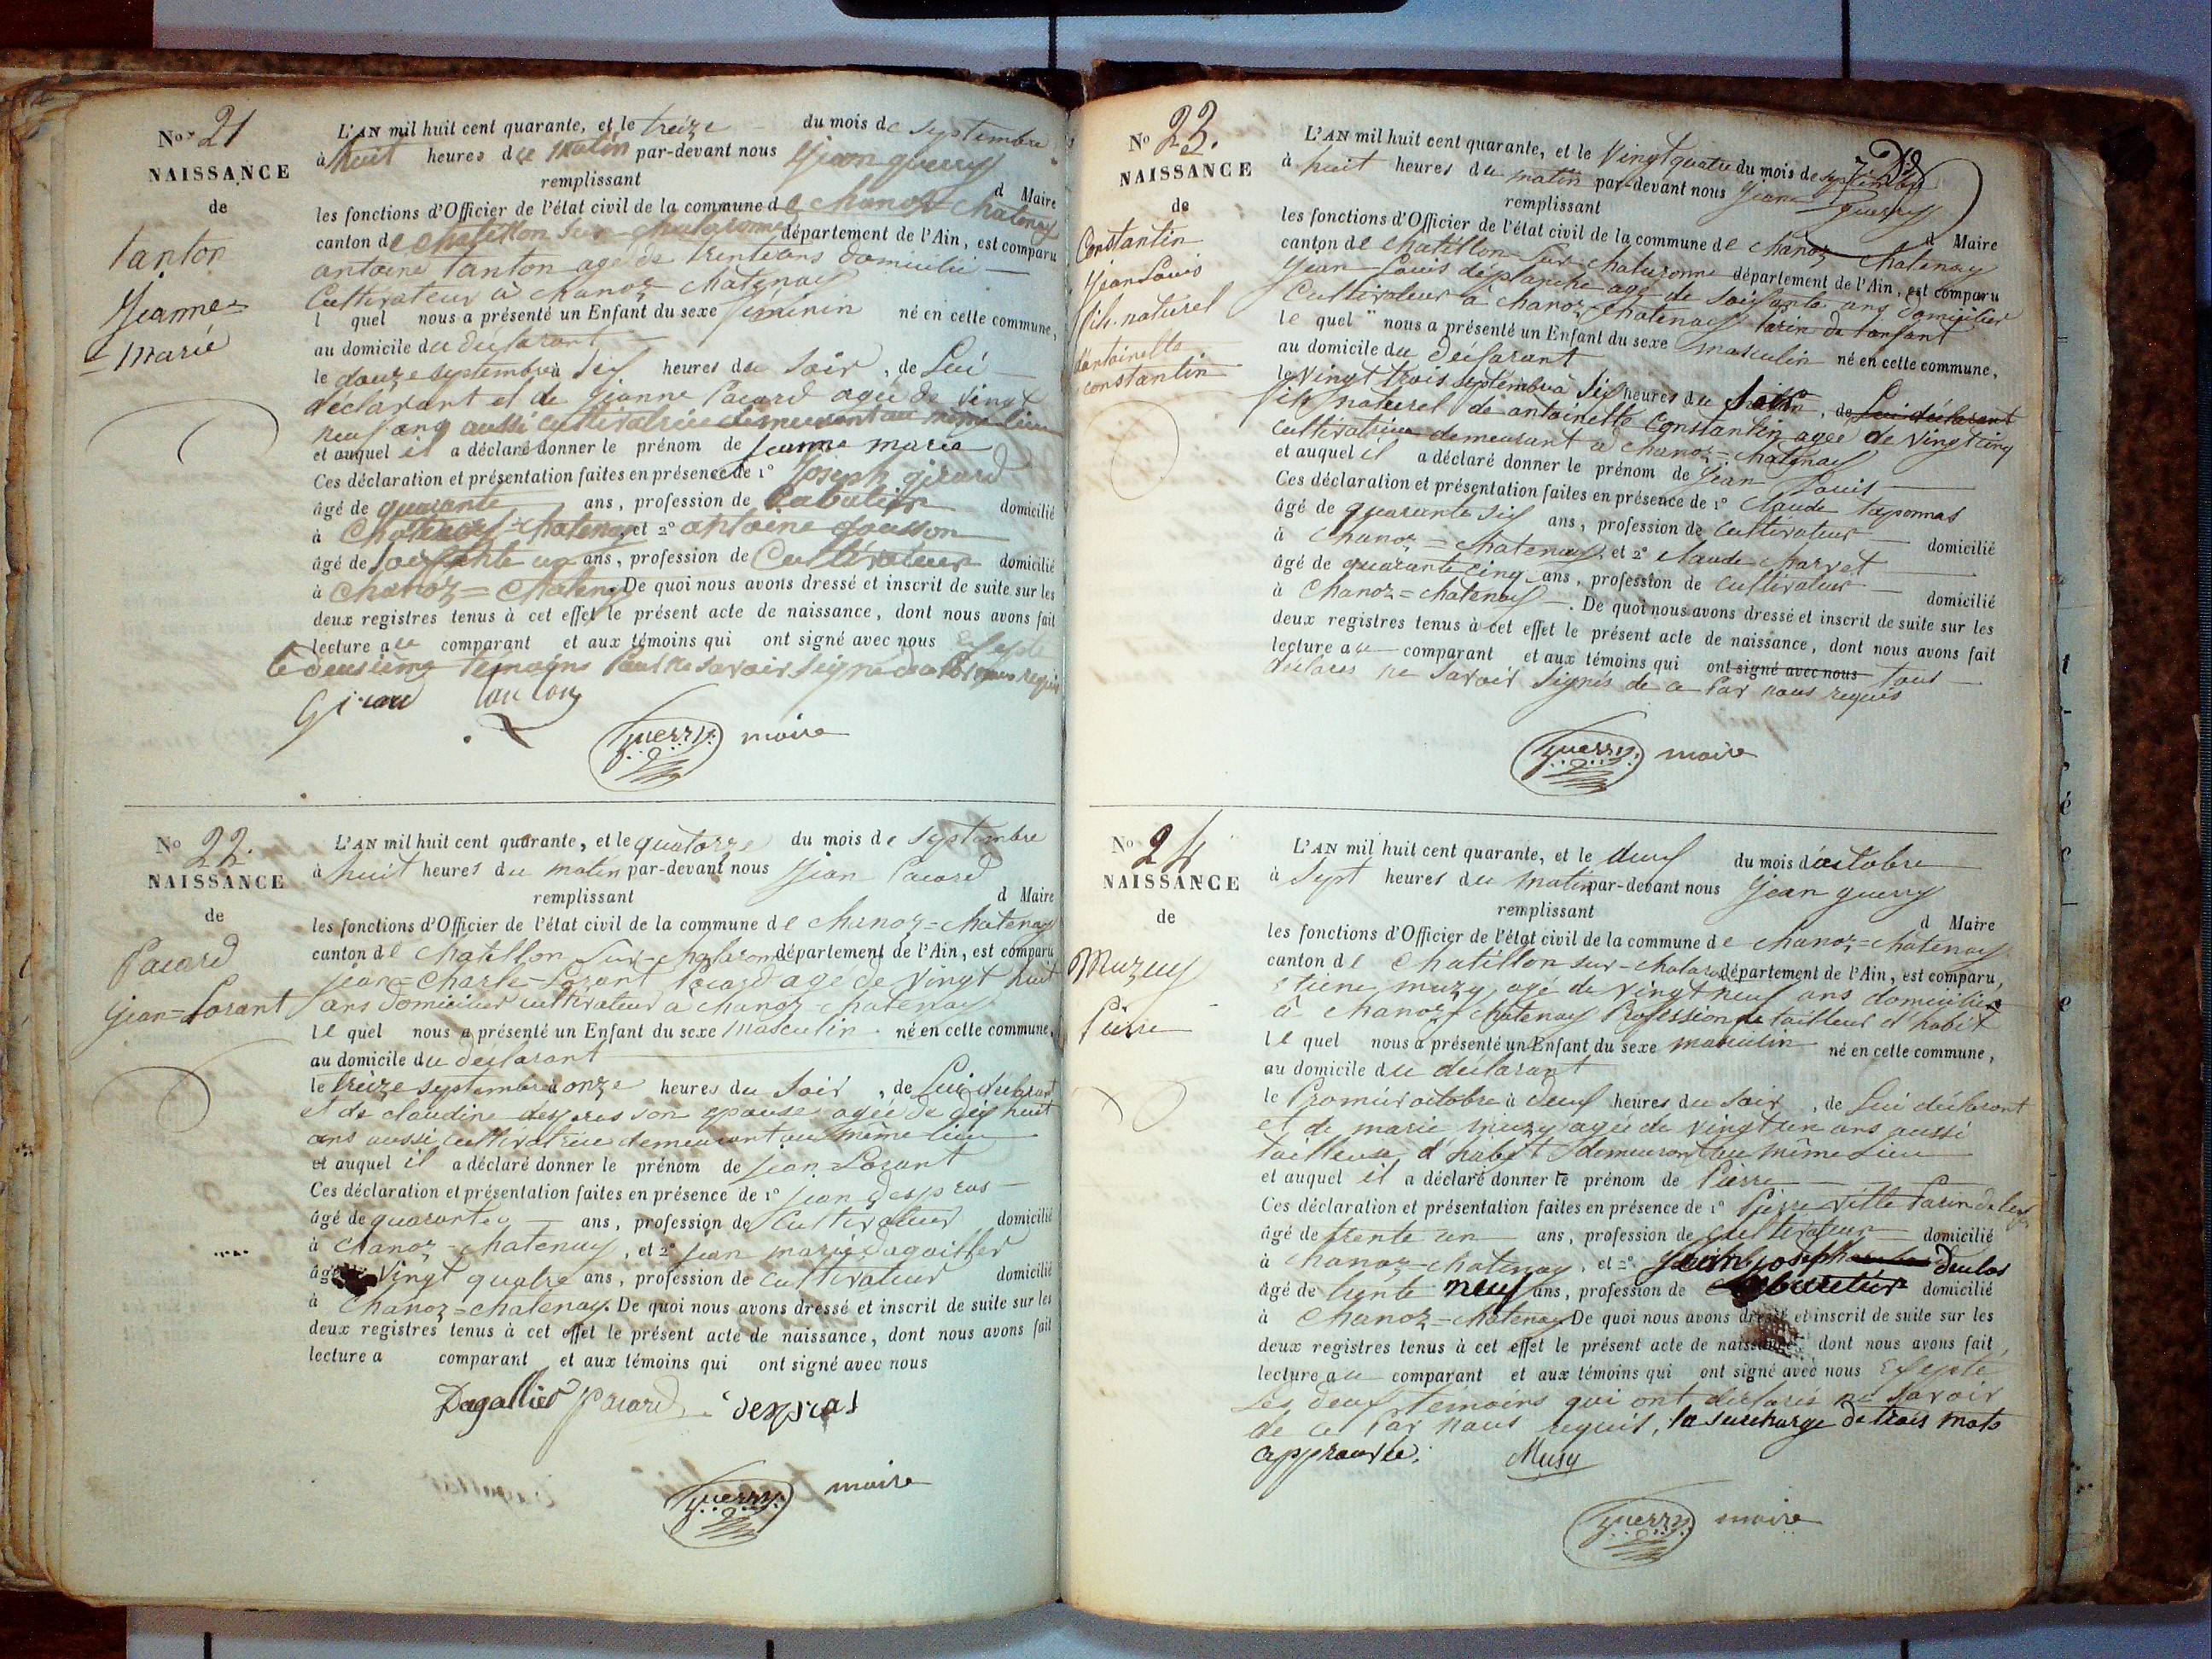 No 21
NAISSANCE
de
Tanton
Jeanne =
= Marie
L'AN mil huit cent quarante, et le treize du mois de Septembre
à huit heures due matin par-devant nous Jean Guerry
remplissant d Maire
les fonctions d'Officier de l'état civil de la commune de Chanoz Chatenay
canton de Chatillon Sur Chalaronne département de l'Ain, est comparu
antoine Tanton agé de trente ans domicilié
Cultivateur à Chanoz Chatenay
l quel nous a présenté un Enfant du sexe féminin né en cette commune,
au domicile du déclarant
le douze septembre à six heures du Soir, de Lui
déclarant et de Jeanne Pacard agée de Vingt
neuf ans aussi cultivatrice demeurant au même lieu
et auquel il a déclaré donner le prénom de Jeanne marie
Ces déclaration et présentation faites en présence de 1° Joseph girard
âgé de quarante ans, profession de Cabatier domicilié
à Chatenay et 2° antoine
âgé de Soixante un ans, profession de Cultivateur domicilié
à Chanoz = Chateny De quoi nous avons dressé et inscrit de suite sur les
deux registres tenus à cet effet le présent acte de naissance, dont nous avons fait
lecture au comparant et aux témoins qui ont signé avec nous Septé
le deusième témoins Pour ne savoir signé de ce Par nous requis
Girard Tanton
Guerry maire
No 22.
NAISSANCE
de
Pacard
Jean = Lorant
L'AN mil huit cent quarante, et le quatorze du mois de Septembre
à huit heures du matin par-devant nous Jean Pacard
remplissant d Maire
les fonctions d'Officier de l'état civil de la commune de Chanoz = Chatenay
canton de Chatillon Sur-Chalaronne département de l'Ain, est comparu
jean = Charle = Lorant Pacard agé de Vingt huit
ans domicilier cultivateur à Chanoz Chatenay
le quel nous a présenté un Enfant du sexe masculin né en cette commune,
au domicile du declarant
le treize septembre à onze heures du Soir, de Lui déclarant
et de claudine despras son epouse agée de dix huit
ans aussi cultivatrice demeurant au même lieu
et auquel il a déclaré donner le prénom de jean Lorant
Ces déclaration et présentation faites en présence de 1° jean despras
âgé de quarante ans, profession de Cultivateur domicilié
à Chanoz = Chatenay, et 2° jean marie Dagallier
âgé Vingt quatre ans, profession de Cultivateur domicilié
à Chanoz = chatenay. De quoi nous avons dressé et inscrit de suite sur les
deux registres tenus à cet effet le présent acte de naissance, dont nous avons fait
lecture a comparant et aux témoins qui ont signé avec nous
Dagallier Pacard despras
Guerry maire
No 23.
NAISSANCE
de
Constantin
Jean Louis
fils naturel
d'antoinette
constantin
L'AN mil huit cent quarante, et le Vingt quatre du mois de septembre
à huit heures du matin par-devant nous Jean Guerry
remplissant d Maire
les fonctions d'Officier de l'état civil de la commune de Chanoz Chatenay
canton de Chatillon Sur Chalaronne département de l'Ain, est comparu
Jean Louis déplanche agé de Soixante ans domicilier
Cultivateur à Chanoz Chatenay Parin de l'anfant
le quel " nous a présenté un Enfant du sexe masculin né en cette commune,
au domicile du déclarant
le Vingt trois septembre à Six heures du Soir, de Lui déclarant
fils naturel de antoinette Constantin agée de Vingt cinq
cultivatrice demeurant à Chanoz = Chatenay
et auquel il a déclaré donner le prénom de Jean Louis
Ces déclaration et présentation faites en présence de 1° Claude Taponnas
âgé de quarante six ans, profession de Cultivateur domicilié
à Chanoz = Chatenay, et 2° Claude Charvet
âgé de quarante cinq ans, profession de Cultivateur domicilié
à Chanoz = chatenay. De quoi nous avons dressé et inscrit de suite sur les
deux registres tenus à cet effet le présent acte de naissance, dont nous avons fait
lecture au comparant et aux témoins qui ont signé avec nous tous
déclarés ne Savoir Signés de ce Par nous requis
Guerry maire
No 24
NAISSANCE
de
Muzuy
Pierre
L'AN mil huit cent quarante, et le deux du mois d'octobre
à Sept heures du matin par-devant nous Jean guerry
remplissant d Maire
les fonctions d'Officier de l'état civil de la commune de Chanoz = Chatenay
canton de Chatillon sur-Chalaronne département de l'Ain, est comparu,
tiene muzy agé de Vingt neuf ans domicilier
à Chanoz Chatenay Profession de tailleur d'habit
le quel nous a présenté un Enfant du sexe masculin né en cette commune,
au domicile du déclarant
le Promier octobre à deux heures du Soir, de Lui déclarant
et de marie muzy agée de Vingt un ans aussi
tailleuse d'habit demeurant au même Lieu
et auquel il a déclaré donner le prénom de Pierre
Ces déclaration et présentation faites en présence de 1° Pierre Ville Parin
âgé de trente un ans, profession de Cultivateur domicilié
à Chanoz - chatenay, et 2° Jean joseph
âgé de trente neuf ans, profession de domicilié
à Chanoz = chatenay De quoi nous avons dressé et inscrit de suite sur les
deux registres tenus à cet effet le présent acte de naissance, dont nous avons fait
lecture au comparant et aux témoins qui ont signé avec nous Esepté
Les deux témoins qui ont déclarés ne Savoir
de ce Par nous requis, la surcharge de trois mots
approuvée. Musy
Guerry maire